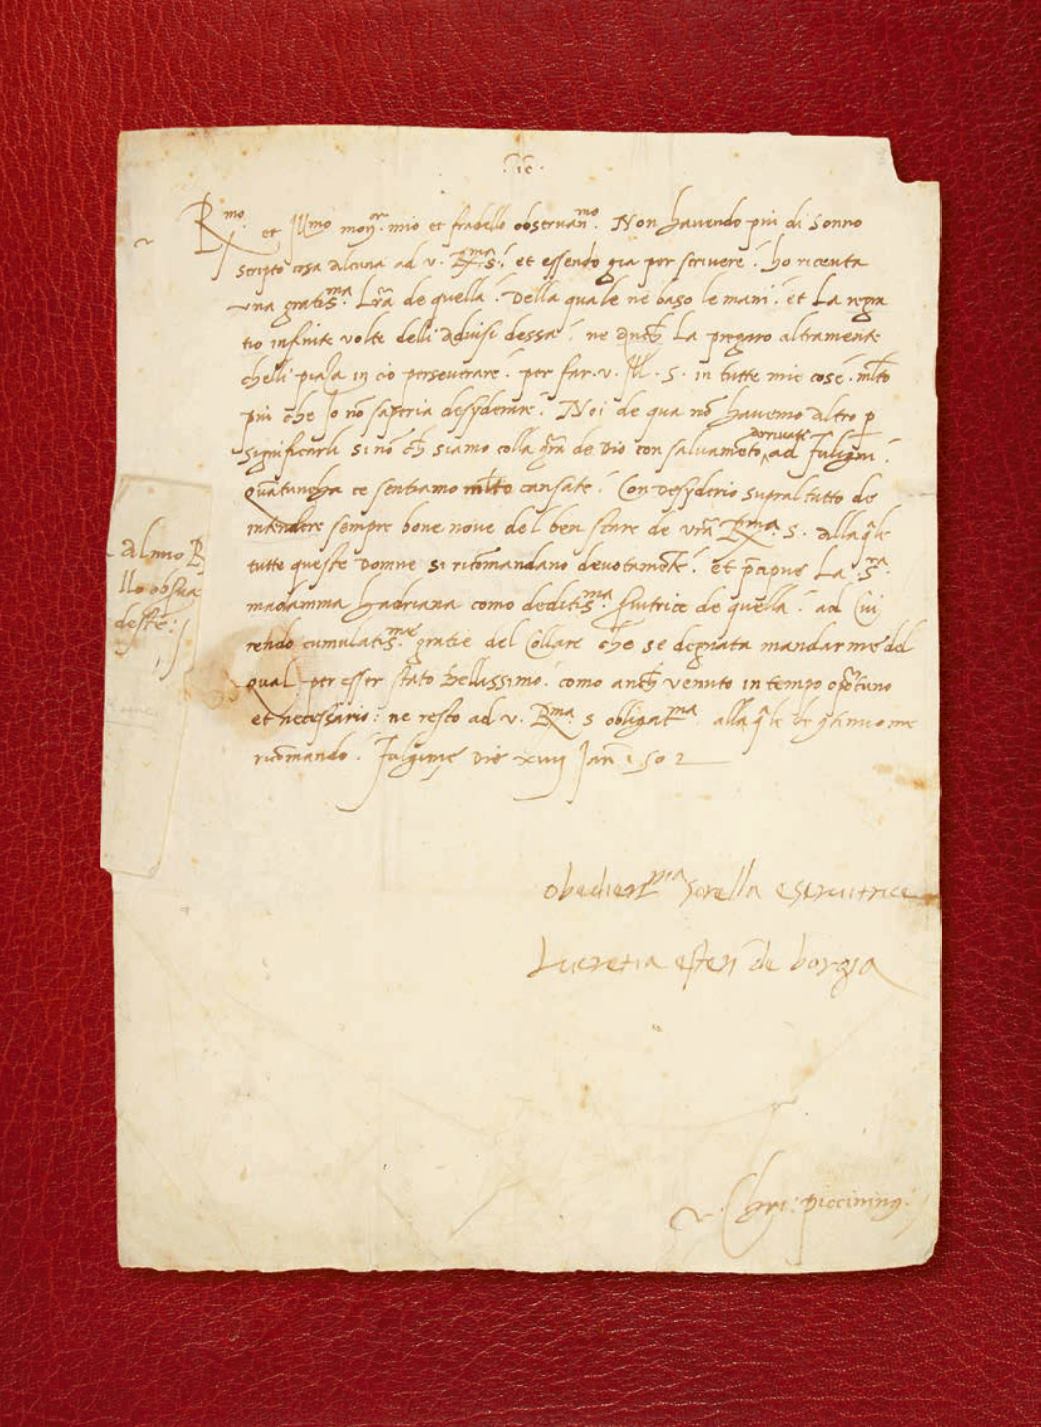 .ic.
R.mo et Ill.mo mon.r mio et fratello observan.mo. Non havendo piu di Sonno
scripto cosa alcuna ad v. R.ma S. et essendo gia per scrivere. ho riceuta
una gratis.ma Lr̃a de quella. Della quale ne baso le mani. et La regra
tio infinite volte delli advisi dessa. ne La pregaro altramente
chelli piaza in cio perseverare. per far. v. Ill. S. in tutte mie cose. mlto
piu che Io nõ saperia desyderare. Noi de qua nõ havemo altro p
significarli si nõ siamo colla gr̃a de Dio con salvamẽto arrivate ad Fuligni.
ce sentiamo mlto cansate. Con desyderio supral tutto de
sempre bone nove del ben stare de vr̃a R.ma S. alla
tutte queste Domne si ricõmandano devotamẽte. et La S.ra
madamma hadriana como deditis.ma de quella. ad Cui
rendo cumulatis.me gratie del Collare che se degnata mandarme del
qual per esser stato bellissimo. como venuto in tempo
et necessario: ne resto ad v. R.ma S obligat.ma. alla me
ricõmando. Die Jan̄ 1502
obedient.ma sorella e servitrice
Lucretia esten de borgia
al mio R
llo obs̃ua
deste:
piccininus.